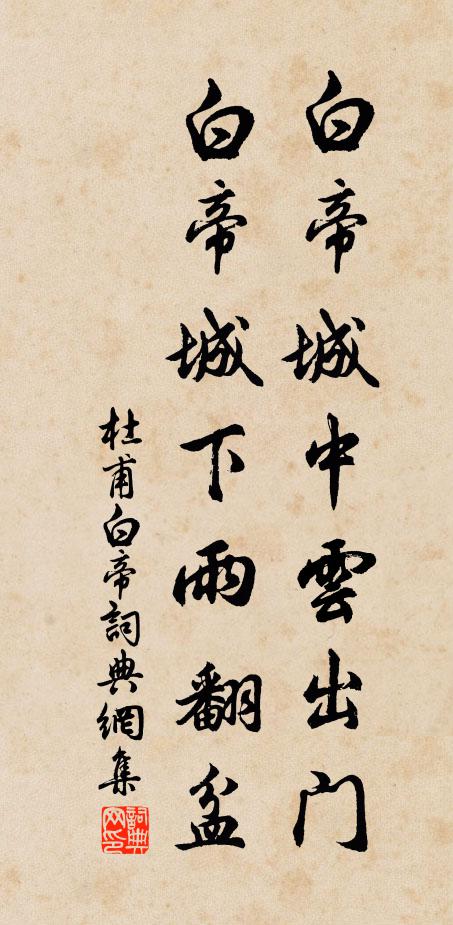 白帝城中雲出门
白帝城下雨翻盆
杜甫白帝詞典網集
詞典网印